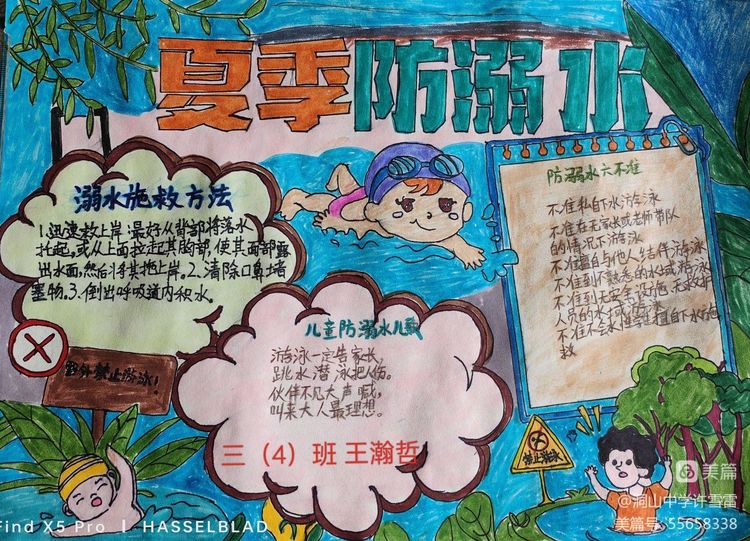 夏季防溺水
溺水施救方法
1.迅速救上岸：最好从背部将落水
托起，或从上面拉起其胸部，使其面部露
出水面，然后将其拖上岸。2.清除口鼻堵
塞物。3.倒出呼吸道内积水。
防溺水六不准
不准私自下水游泳
不准在无家长或老师带队
的情况下游泳
不准擅自与他人结伴游泳
不准到不熟悉的水域游泳
不准到无安全设施、无救护
人员的水域游泳
不准不会水性学生擅自下水施
救
儿童防溺水儿歌
游泳一定告家长，
跳水潜泳把人伤。
伙伴不见大声喊，
叫来大人最理想。
三（4）班 王瀚哲
野外禁止游泳！
禁止游泳
美篇
@洞山中学许雪雷
美篇号：55658338
Find X5 Pro | HASSELBLAD